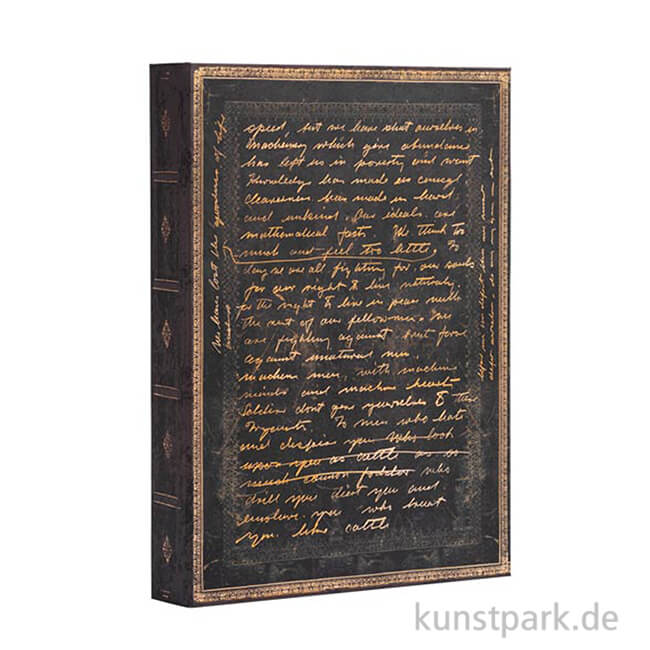 speed, but we have shut ourselves in
Machinery which gives abundance
has left us in poverty and want
Knowledge has made us cynical
cleverness has made us hard
and unkind. Our ideals are
mathematical facts. We think too
much and feel too little. To
day we are all fighting for our souls
for our right to live naturally
for the right to live in peace with
the rest of our fellowmen. We
are fighting against brut force
against unatural men.
machine men, with machine
minds and machine hearts
Soldiers dont give yourselves to these
To men who hate
and despise you who look
upon you as cattle as
cannon fodder who
drill you diet you and
enslave you who treat
you like cattle
We have lost the of life
kunstpark.de